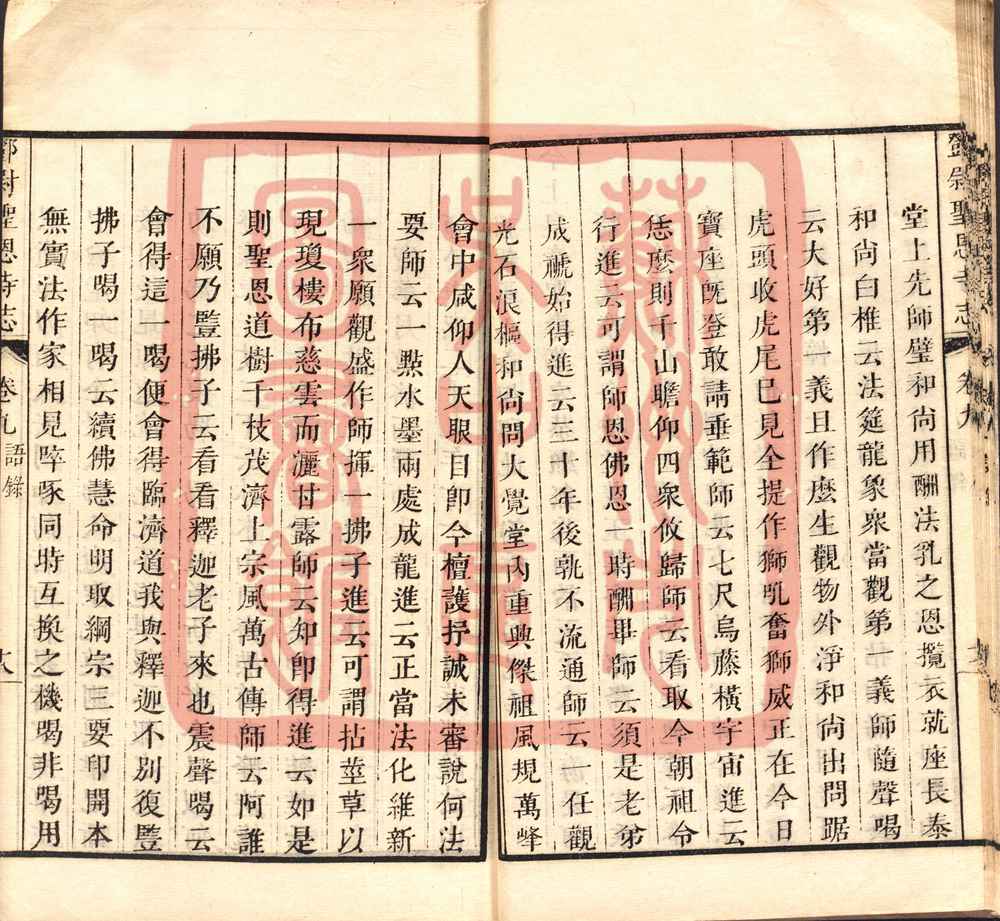 鄧尉聖恩寺志 卷九
堂上先師璧和尚用酬法乳之恩攬衣就座長泰
和尚白椎云法筵龍象衆當觀第一義師隨聲喝
云大好第一義且作麽生觀物外淨和尚出問踞
虎頭收虎尾已見全提作獅吼奮獅威正在今日
寶座旣登敢請垂範師云七尺烏藤橫宇宙進云
恁麽則千山瞻仰四衆攸歸師云看取今朝祖令
行進云可謂師恩佛恩一時酬畢師云須是老弟
成禠始得進云三十年後孰不流通師云一任觀
光石浪樞和尚問大覺堂內重興傑祖風規萬峰
會中咸仰人天眼目即今檀護抒誠未審說何法
要師云一點水墨兩處成龍進云正當法化維新
一衆願觀盛作師揮一拂子進云可謂拈莖草以
現瓊樓布慈雲而灑甘露師云知即得進云如是
則聖恩道樹千枝茂濟上宗風萬古傳師云阿誰
不願乃豎拂子云看看釋迦老子來也震聲喝云
會得這一喝便會得臨濟道我與釋迦不別復豎
拂子喝一喝云續佛慧命明取綱宗三要印開本
無實法作家相見啐啄同時互換之機喝非喝用
鄧尉聖恩寺志 卷九 語錄
蘇州
圖書館